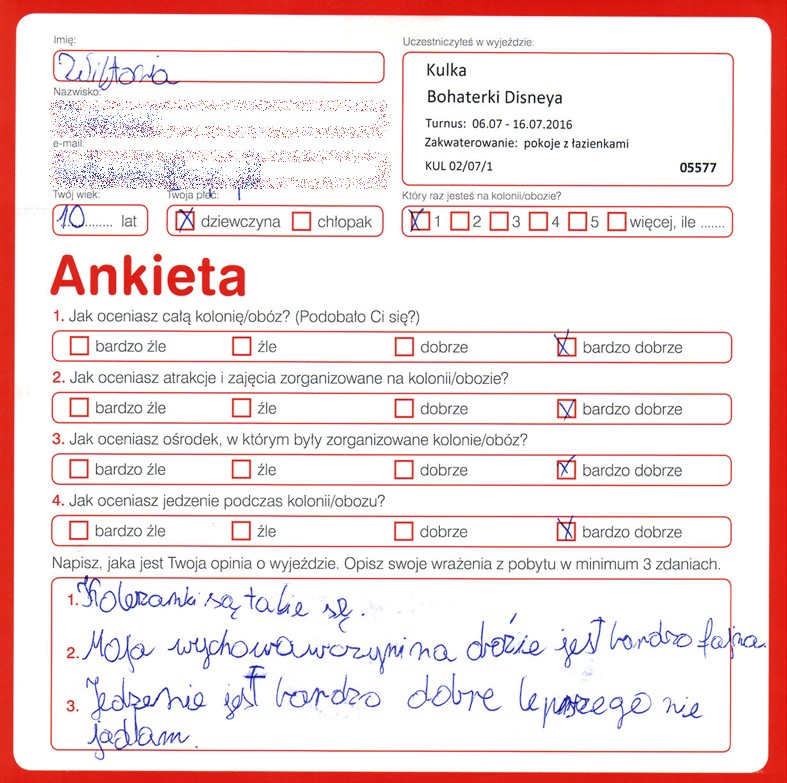 Imię:
Uczestniczyłeś w wyjeździe:
Wiktoria
Kulka
Bohaterki Disneya
Turnus: 06.07 - 16.07.2016
Zakwaterowanie: pokoje z łazienkami
KUL 02/07/1 05577
Nazwisko:
e-mail:
Twój wiek: Twoja płeć: Który raz jesteś na kolonii/obozie?
10 lat dziewczyna chłopak 1 2 3 4 5 więcej, ile .......
Ankieta
1. Jak oceniasz całą kolonię/obóz? (Podobało Ci się?)
bardzo źle źle dobrze bardzo dobrze
2. Jak oceniasz atrakcje i zajęcia zorganizowane na kolonii/obozie?
bardzo źle źle dobrze bardzo dobrze
3. Jak oceniasz ośrodek, w którym były zorganizowane kolonie/obóz?
bardzo źle źle dobrze bardzo dobrze
4. Jak oceniasz jedzenie podczas kolonii/obozu?
bardzo źle źle dobrze bardzo dobrze
Napisz, jaka jest Twoja opinia o wyjeździe. Opisz swoje wrażenia z pobytu w minimum 3 zdaniach.
1. Koleżanki są takie
2. Moja jest bardzo fajna.
3. Jedzenie jest bardzo dobre lepszego nie
jadłam.